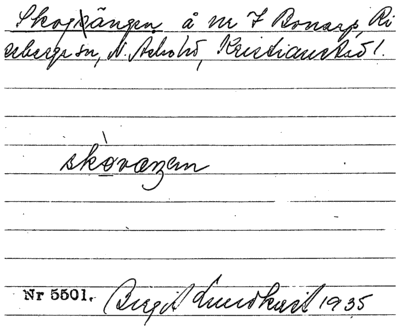 Skogängen å nr 7 Bonarp, Ri
seberga sn, N. Åsbo hd, Kristianstad l.
skòvæŋen
Nr 5501. Birgit Lundkvist 1935